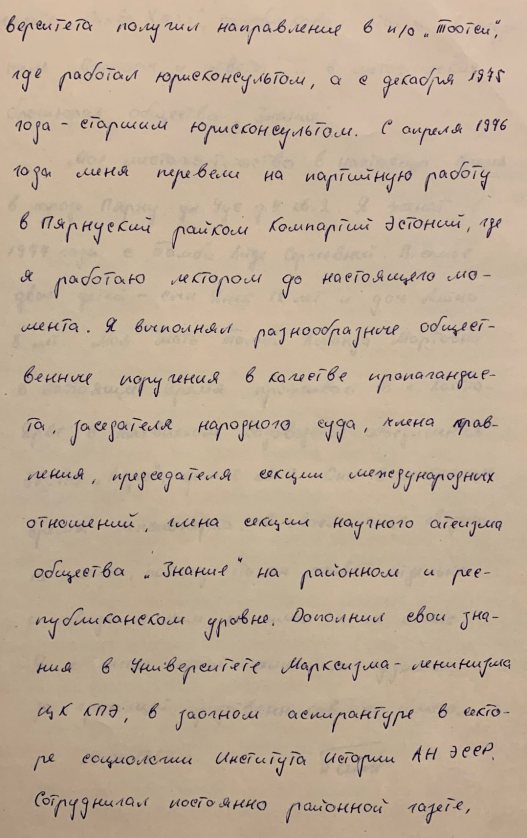 верситета получил направление в п/о „Тоотси",
где работал юрисконсультом, а с декабря 1975
года - старшим юрисконсультом. С апреля 1976
года меня перевели на партийную работу
в Пярнуский райком Компартий Эстоний, где
я работаю лектором до настоящего мо-
мента. Я выполнял разнообразные общест-
венные поручения в качестве пропагандис-
та, заседателя народного суда, члена прав-
ления, председателя секции международных
отношений, члена секции научного атеизма
общества „Знание" на районном и рес-
публиканском уровне. Дополнил свои зна-
ния в Университете Марксизма-ленинизма
ЦК КПЭ, в заочном аспирантуре в секто-
ре социологии Института Истории АН ЭССР.
Сотрудничал постоянно районной газете,